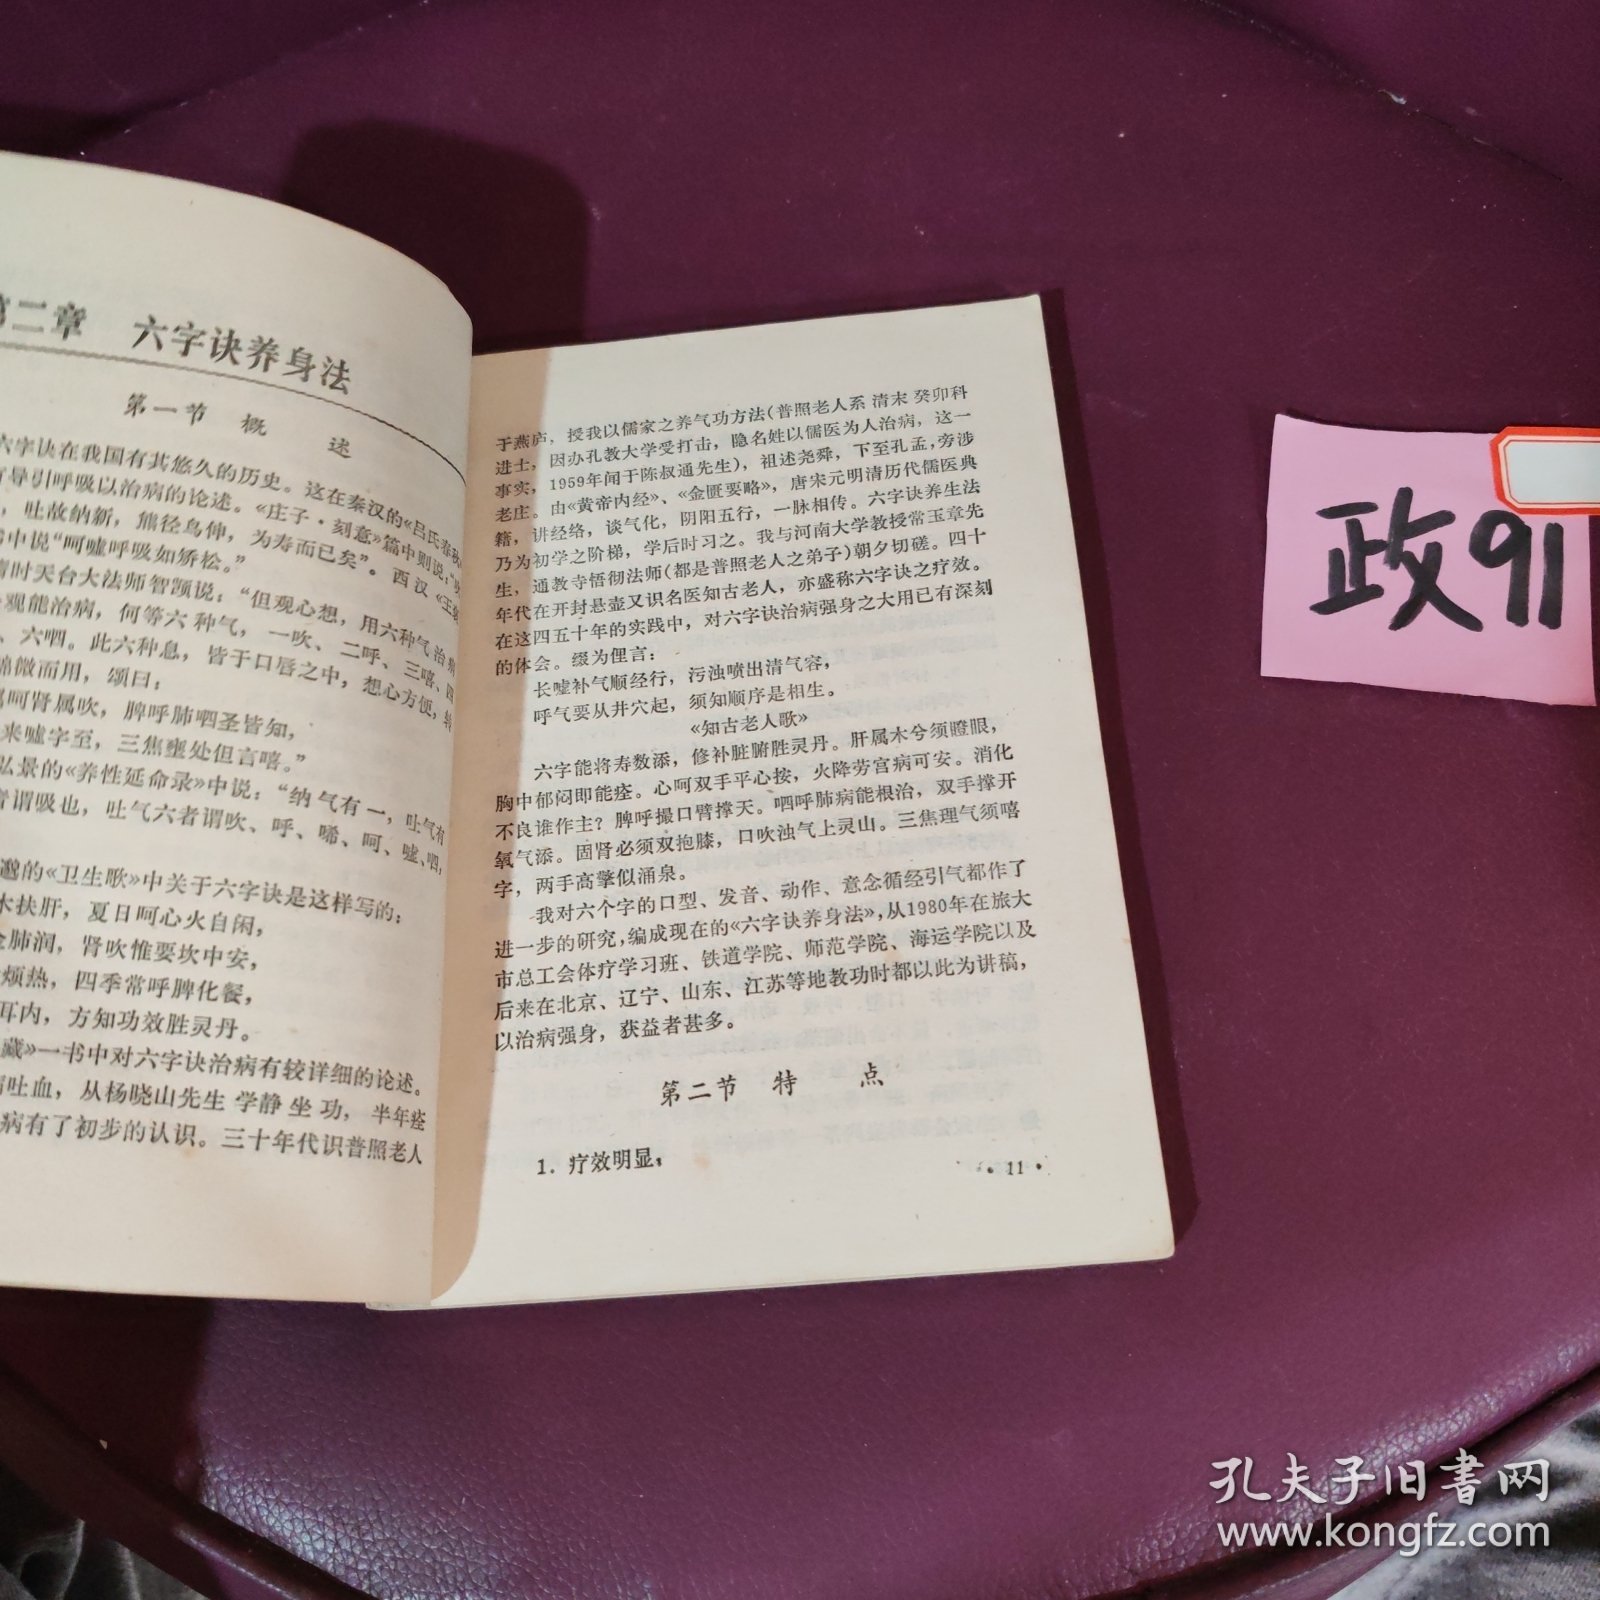 第二章 六字诀养身法
第一节 概 述
六字诀在我国有其悠久的历史。这在秦汉的《吕氏春秋
有导引呼吸以治病的论述。《庄子·刻意》篇中则说:“
，吐故纳新，熊径鸟伸，为寿而已矣”。西汉《王
中说“呵嘘呼吸如矫松。”
隋时天台大法师智顗说:“但观心想，用六种气治病
观能治病，何等六种气，一吹、二呼、三嘻、四
、六呬。此六种息，皆于口唇之中，想心方便，转
绵微而用，颂曰:
属呵肾属吹，脾呼肺呬圣皆知，
来嘘字至，三焦壅处但言嘻。”
弘景的《养性延命录》中说:“纳气有一，吐气有
者谓吸也，吐气六者谓吹、呼、唏、呵、嘘、呬，
邈的《卫生歌》中关于六字诀是这样写的:
木扶肝，夏日呵心火自闲，
金肺润，肾吹惟要坎中安，
烦热，四季常呼脾化餐，
耳内，方知功效胜灵丹。
藏》一书中对六字诀治病有较详细的论述。
吐血，从杨晓山先生学静坐功，半年痊
病有了初步的认识。三十年代识普照老人
于燕庐，授我以儒家之养气功方法(普照老人系清末癸卯科
进士，因办孔教大学受打击，隐名姓以儒医为人治病，这一
事实，1959年闻于陈叔通先生)，祖述尧舜，下至孔孟，旁涉
老庄。由《黄帝内经》、《金匮要略》，唐宋元明清历代儒医典
籍，讲经络，谈气化，阴阳五行，一脉相传。六字诀养生法
乃为初学之阶梯，学后时习之。我与河南大学教授常玉章先
生，通教寺悟彻法师(都是普照老人之弟子)朝夕切磋。四十
年代在开封悬壶又识名医知古老人，亦盛称六字诀之疗效。
在这四五十年的实践中，对六字诀治病强身之大用已有深刻
的体会。缀为俚言:
长嘘补气顺经行，污浊喷出清气容，
呼气要从井穴起，须知顺序是相生。
《知古老人歌》
六字能将寿数添，修补脏腑胜灵丹。肝属木兮须瞪眼，
胸中郁闷即能痊。心呵双手平心按，火降劳宫病可安。消化
不良谁作主？脾呼撮口臂撑天。呬呼肺病能根治，双手撑开
氧气添。固肾必须双抱膝，口吹浊气上灵山。三焦理气须嘻
字，两手高擎似涌泉。
我对六个字的口型、发音、动作、意念循经引气都作了
进一步的研究，编成现在的《六字诀养身法》，从1980年在旅大
市总工会体疗学习班、铁道学院、师范学院、海运学院以及
后来在北京、辽宁、山东、江苏等地教功时都以此为讲稿，
以治病强身，获益者甚多。
第二节 特 点
1. 疗效明显，
· 11 ·
政91
孔夫子旧书网
www.kongfz.com